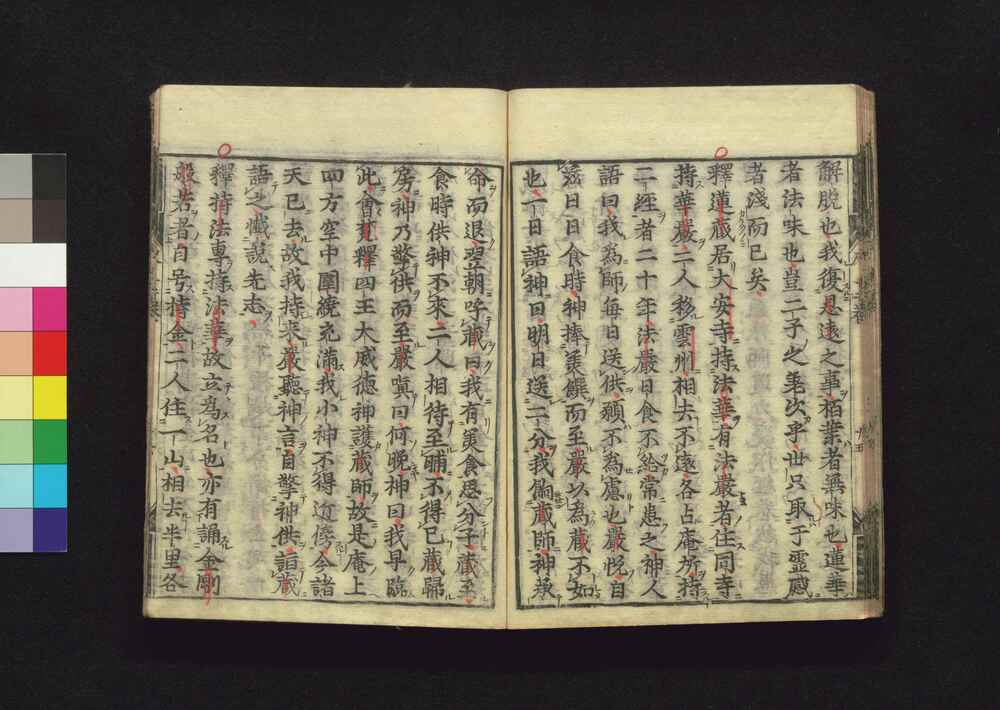 解脫也我復思遠之事拍業者無味也蓮華
者法味也豈二子之毫次乎世只取于靈感
者淺而已矣
釋蓮藏居大安寺持法華有法嚴者住同寺
持華嚴二人移雲州相去不遠各占庵所持
二經者二十年法嚴日食不給常患之神人
語曰我為師每日送供願不為慮也嚴悅自
茲日日食時神捧美饌而至嚴以為藏不如
也一日語神曰明日送二分我倆藏師神承
命而退翌朝呼藏曰我有美食思分子藏至
食時供神不來二人相待至晡不得已藏歸
房神乃擎供而至嚴嗔曰何晚神曰我早臨
此會梵釋四王大威德神護藏師故是庵上
四方空中圍繞充滿我小神不得近傍今諸
天已去故我持來嚴聽神言自擎神供詣藏
語之懺說先志
釋持法專持法華故立為名也亦有誦金剛
般若者自号持金二人住一山相去半里各